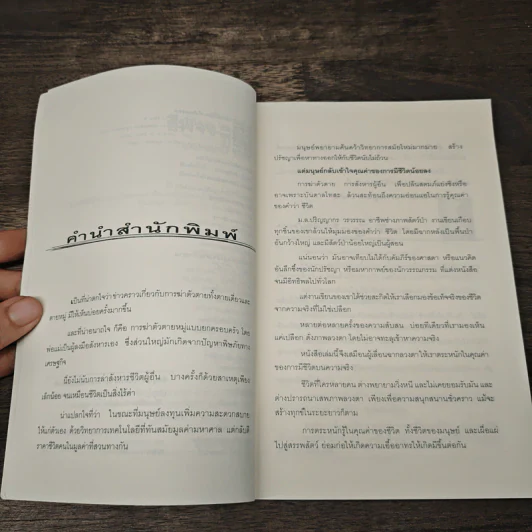 คำนำสำนักพิมพ์
เป็นที่น่าตกใจว่าข่าวคราวเกี่ยวกับการฆ่าตัวตายทั้งตายเดี่ยวและ
ตายหมู่ มีให้เห็นบ่อยครั้งมากขึ้น
และที่น่าอนาถใจ ก็คือ การฆ่าตัวตายหมู่แบบยกครอบครัว โดย
พ่อแม่เป็นผู้ลงมือสังหารเอง ซึ่งส่วนใหญ่มักเกิดจากปัญหาพิษภัยทาง
เศรษฐกิจ
นี่ยังไม่นับการล่าสังหารชีวิตผู้อื่น บางครั้งก็ด้วยสาเหตุเพียง
เล็กน้อย จนเหมือนชีวิตเป็นสิ่งไร้ค่า
น่าแปลกใจที่ว่า ในขณะที่มนุษย์ลงทุนเพิ่มความสะดวกสบาย
ให้แก่ตัวเอง ด้วยวิทยาการเทคโนโลยีที่ทันสมัยมูลค่ามหาศาล แต่กลับตี
ราคาชีวิตคนในมูลค่าที่สวนทางกัน
มนุษย์พยายามค้นคว้าวิทยาการสมัยใหม่มากมาย สร้าง
ปรัชญาเพื่อหาทางออกให้กับชีวิตนับไม่ถ้วน
แต่มนุษย์กลับเข้าใจคุณค่าของการมีชีวิตน้อยลง
การฆ่าตัวตาย การสังหารผู้อื่น เพื่อปลิดลมหายใจชิงหรือ
อาจเพราะบันดาลโทสะ ล้วนสะท้อนถึงความอ่อนแอในการรู้คุณค่า
ของคำว่า ชีวิต
ม.ล.ปริญญากร วรวรรณ อาชีพช่างภาพสัตว์ป่า งานเขียนเกือบ
ทุกชิ้นของเขาล้วนให้มุมมองของคำว่า ชีวิต โดยมีฉากหลังเป็นพื้นป่า
อันกว้างใหญ่ และมีสัตว์ป่าน้อยใหญ่เป็นผู้สอน
แน่นอนว่า มันอาจเทียบไม่ได้กับคัมภีร์ของศาสดา หรือแนวคิด
อันลึกซึ้งของนักปรัชญา หรือมหากาพย์ของนักวรรณกรรม ที่แต่งหนังสือ
จนมีอิทธิพลไปทั่วโลก
แต่งานเขียนของเขาได้ช่วยสะกิดให้เราเลือกมองข้อเท็จจริงของชีวิต
จากความจริงที่ไม่ใช่เปลือก
หลายต่อหลายครั้งของความสับสน บ่อยทีเดียวที่เรามองเห็น
แค่เปลือก ดั่งภาพลวงตา โดยไม่อาจทะลุเข้าหาความจริง
หนังสือเล่มนี้จึงเสมือนผู้เลื่อนฉากลวงตาให้เราตระหนักในคุณค่า
ของการมีชีวิตบนความจริง
ชีวิตที่ใครหลายคน ต่างพยายามวิ่งหนี และไม่เคยยอมรับมัน และ
ต่างปรารถนาเสพภาพลวงตา เพียงเพื่อความสนุกสนานชั่วคราว แม้จะ
สร้างทุกข์ในระยะยาวก็ตาม
การตระหนักรู้ในคุณค่าของชีวิต ทั้งชีวิตของมนุษย์ และเผื่อแผ่
ไปสู่สรรพสัตว์ ย่อมก่อให้เกิดความเอื้ออาทรให้เกิดมีขึ้นต่อกัน